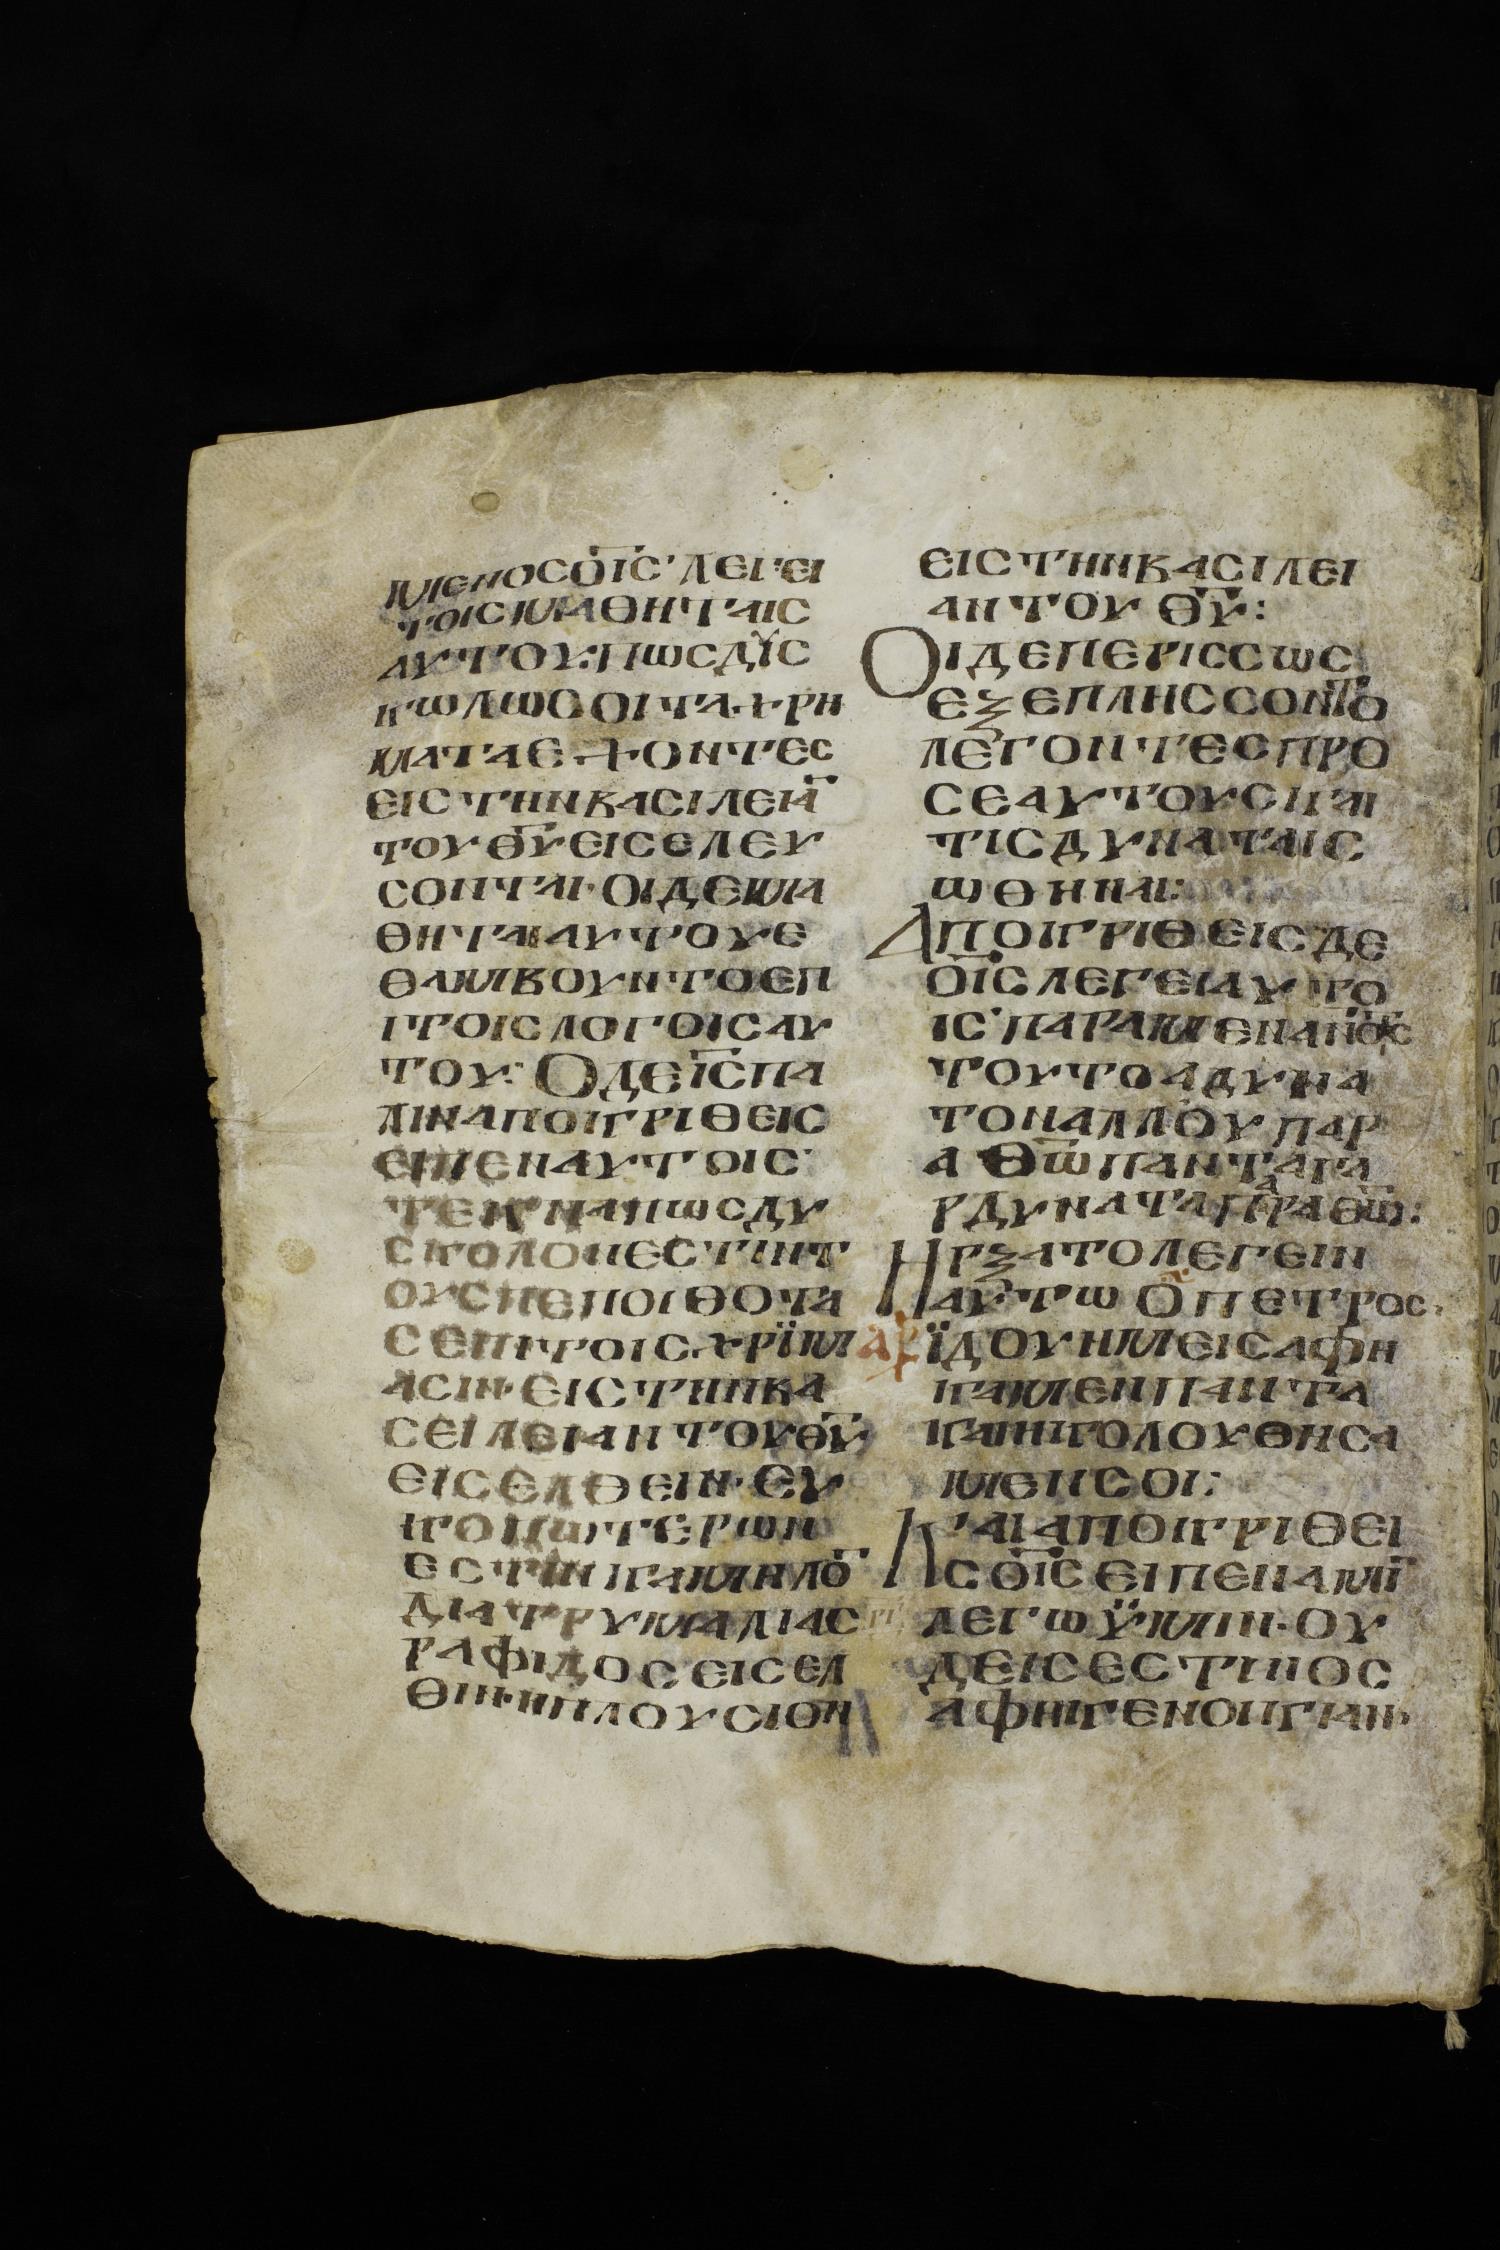 ΜΕΝΟΣΟΙ̅Σ̅ ΛΕΓΕΙ
ΤΟΙΣΜΑΘΗΤΑΙΣ
ΑΥΤΟΥ:ΠΩΣΔΥΣ
ΚΩΛΩΣΟΙΤΑΧΡΗ
ΜΑΤΑΕΧΟΝΤΕΣ
ΕΙΣΤΗΝΒΑΣΙΛΕΙΑ̅
ΤΟΥΘ̅Υ̅ΕΙΣΕΛΕΥ
ΣΟΝΤΑΙ·ΟΙΔΕΜΑ
ΘΗΤΑΙΑΥΤΟΥΕ
ΘΑΜΒΟΥΝΤΟΕΠ
ΙΤΟΙΣΛΟΓΟΙΣΑΥ
ΤΟΥ:ΟΔΕΙ̅Σ̅ΠΑ
ΛΙΝΑΠΟΚΡΙΘΕΙΣ
ΕΙΠΕΝΑΥΤΟΙΣ·
ΤΕΚΝΑΠΩΣΔΥ
ΣΚΟΛΟΝΕΣΤΙΝΤ
ΟΥΣΠΕΠΟΙΘΟΤΑ
ΣΕΠΙΤΟΙΣΧΡΪΜ
ΑΣΙΝ·ΕΙΣΤΗΝΒΑ
ΣΕΙΛΕΙΑΝΤΟΥΘ̅Υ̅
ΕΙΣΕΛΘΕΙΝ·ΕΥ
ΚΟΠΩΤΕΡΩΝ
ΕΣΤΙΝΚΑΜΗΛΟ̅
ΔΙΑΤΡΥΜΑΛΙΑΣ
ΡΑΦΙΔΟΣΕΙΣΕΛ
ΘΙΝ·ΗΠΛΟΥΣΙΟΝ
ΕΙΣΤΗΝΒΑΣΙΛΕΙ
ΑΝΤΟΥΘ̅Υ̅:
ΟΙΔΕΠΕΡΙΣΣΩΣ
ΕΞΕΠΛΗΣΣΟΝΤΟ
ΛΕΓΟΝΤΕΣΠΡΟ
ΣΕΑΥΤΟΥΣΚΑΙ
ΤΙΣΔΥΝΑΤΑΙΣ
ΩΘΗΝΑΙ:
ΑΠΟΚΡΙΘΕΙΣΔΕ
ΟΙ̅Σ̅ΛΕΓΕΙΑΥΤΟ
ΙΣ·ΠΑΡΑΜΕΝΑΝ̅Ο̅Ι̅Σ̅
ΤΟΥΤΟΑΔΥΝΑ
ΤΟΝΑΛΛΟΥΠΑΡ
ΑΘ̅Ω̅ΠΑΝΤΑΓΑ
ΡΔΥΝΑΤΑΠΑΡΑΘ̅Ω̅:
ΗΡΞΑΤΟΛΕΓΕΙΝ
ΑΥΤΩΟΠΕΤΡΟΣ·
ΪΔΟΥΗΜΕΙΣΑΦΗ
ΚΑΜΕΝΠΑΝΤΑ
ΚΑΙΗΚΟΛΟΥΘΗΣΑ
ΜΕΝΣΟΙ:
ΚΑΙΑΠΟΚΡΙΘΕΙ
ΣΟΙ̅Σ̅ΕΙΠΕΝΑΜΗ̅
ΛΕΓΩΫΜΙΝ·ΟΥ
ΔΕΙΣΕΣΤΙΝΟΣ
ΑΦΗΚΕΝΟΙΚΙΑΝ·